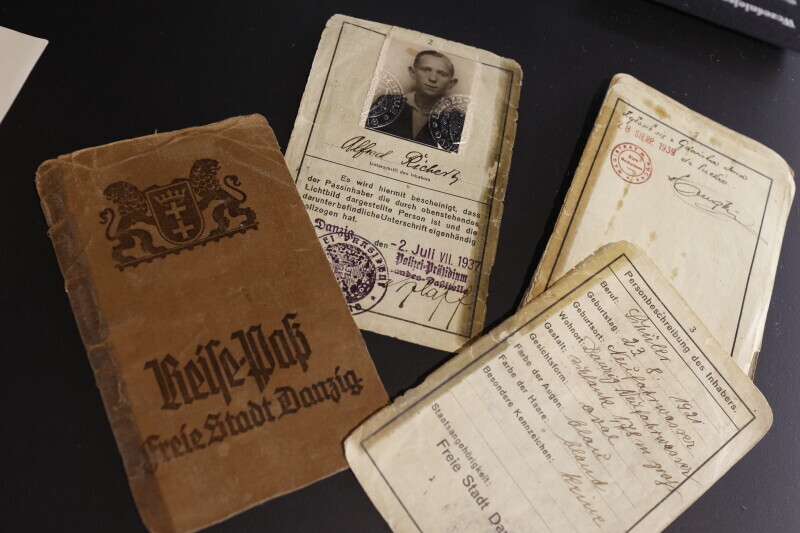 Reise-Paß
Freie Stadt Danzig.
2
Alfred Richert
Unterschrift des Inhabers
Es wird hiermit bescheinigt, dass
der Passinhaber die durch obenstehendes
Lichtbild dargestellte Person ist und die
darunter befindliche Unterschrift eigenhändig
vollzogen hat.
Danzig den -2. Juli VII. 1937
Polizei-Präsidium
Landes-Paßstelle
3
28 SIERP 1939
3
Personbeschreibung des Inhabers.
Beruf: Schüler
Geburtstag: 23. 8. 1921
Geburtsort: Neufahrwasser
Wohnort: Danzig Neufahrwasser
Gestalt: schlank 178 m groß
Gesichtsform: oval
Farbe der Augen: blau
Farbe der Haare: blond
Besondere Kennzeichen: keine
Staatsangehörigkeit:
Freie Stadt Da